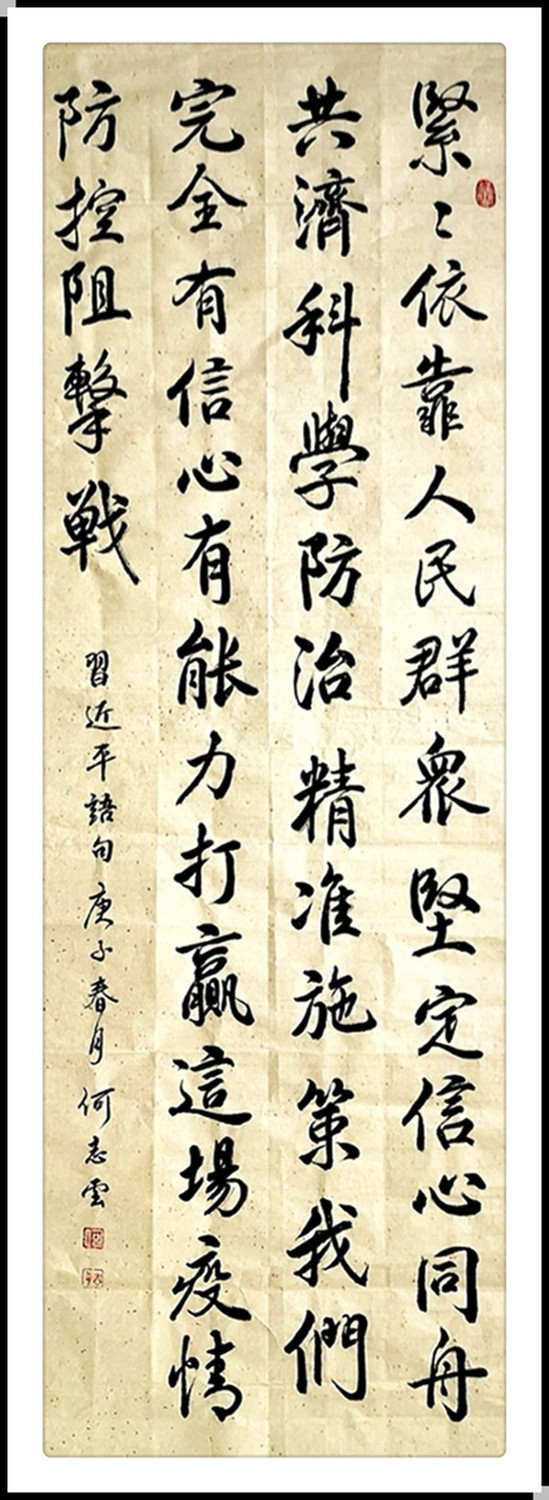 緊〻依靠人民群衆堅定信心同舟
共濟科學防治精准施策我們
完全有信心有能力打贏這場疫情
防控阻擊戰
習近平語句庚子春月何志雲